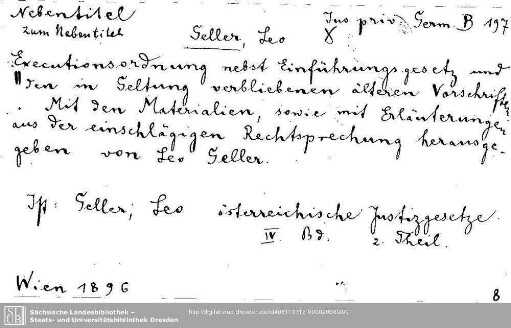 Nebentitel
zum Nebentitel
Jus priv. Germ. B 197
Geller, Leo
Executionsordnung nebst Einführungsgesetz und
den in Geltung verbliebenen älteren Vorschriften.
Mit den Materialien, sowie mit Erläuterungen
aus der einschlägigen Rechtsprechung herausge-
geben von Leo Geller.
Ist: Geller, Leo österreichische Justizgesetze.
IV. Bd. 2. Theil.
Wien 1896
8
Sächsische Landesbibliothek –
Staats- und Universitätsbibliothek Dresden